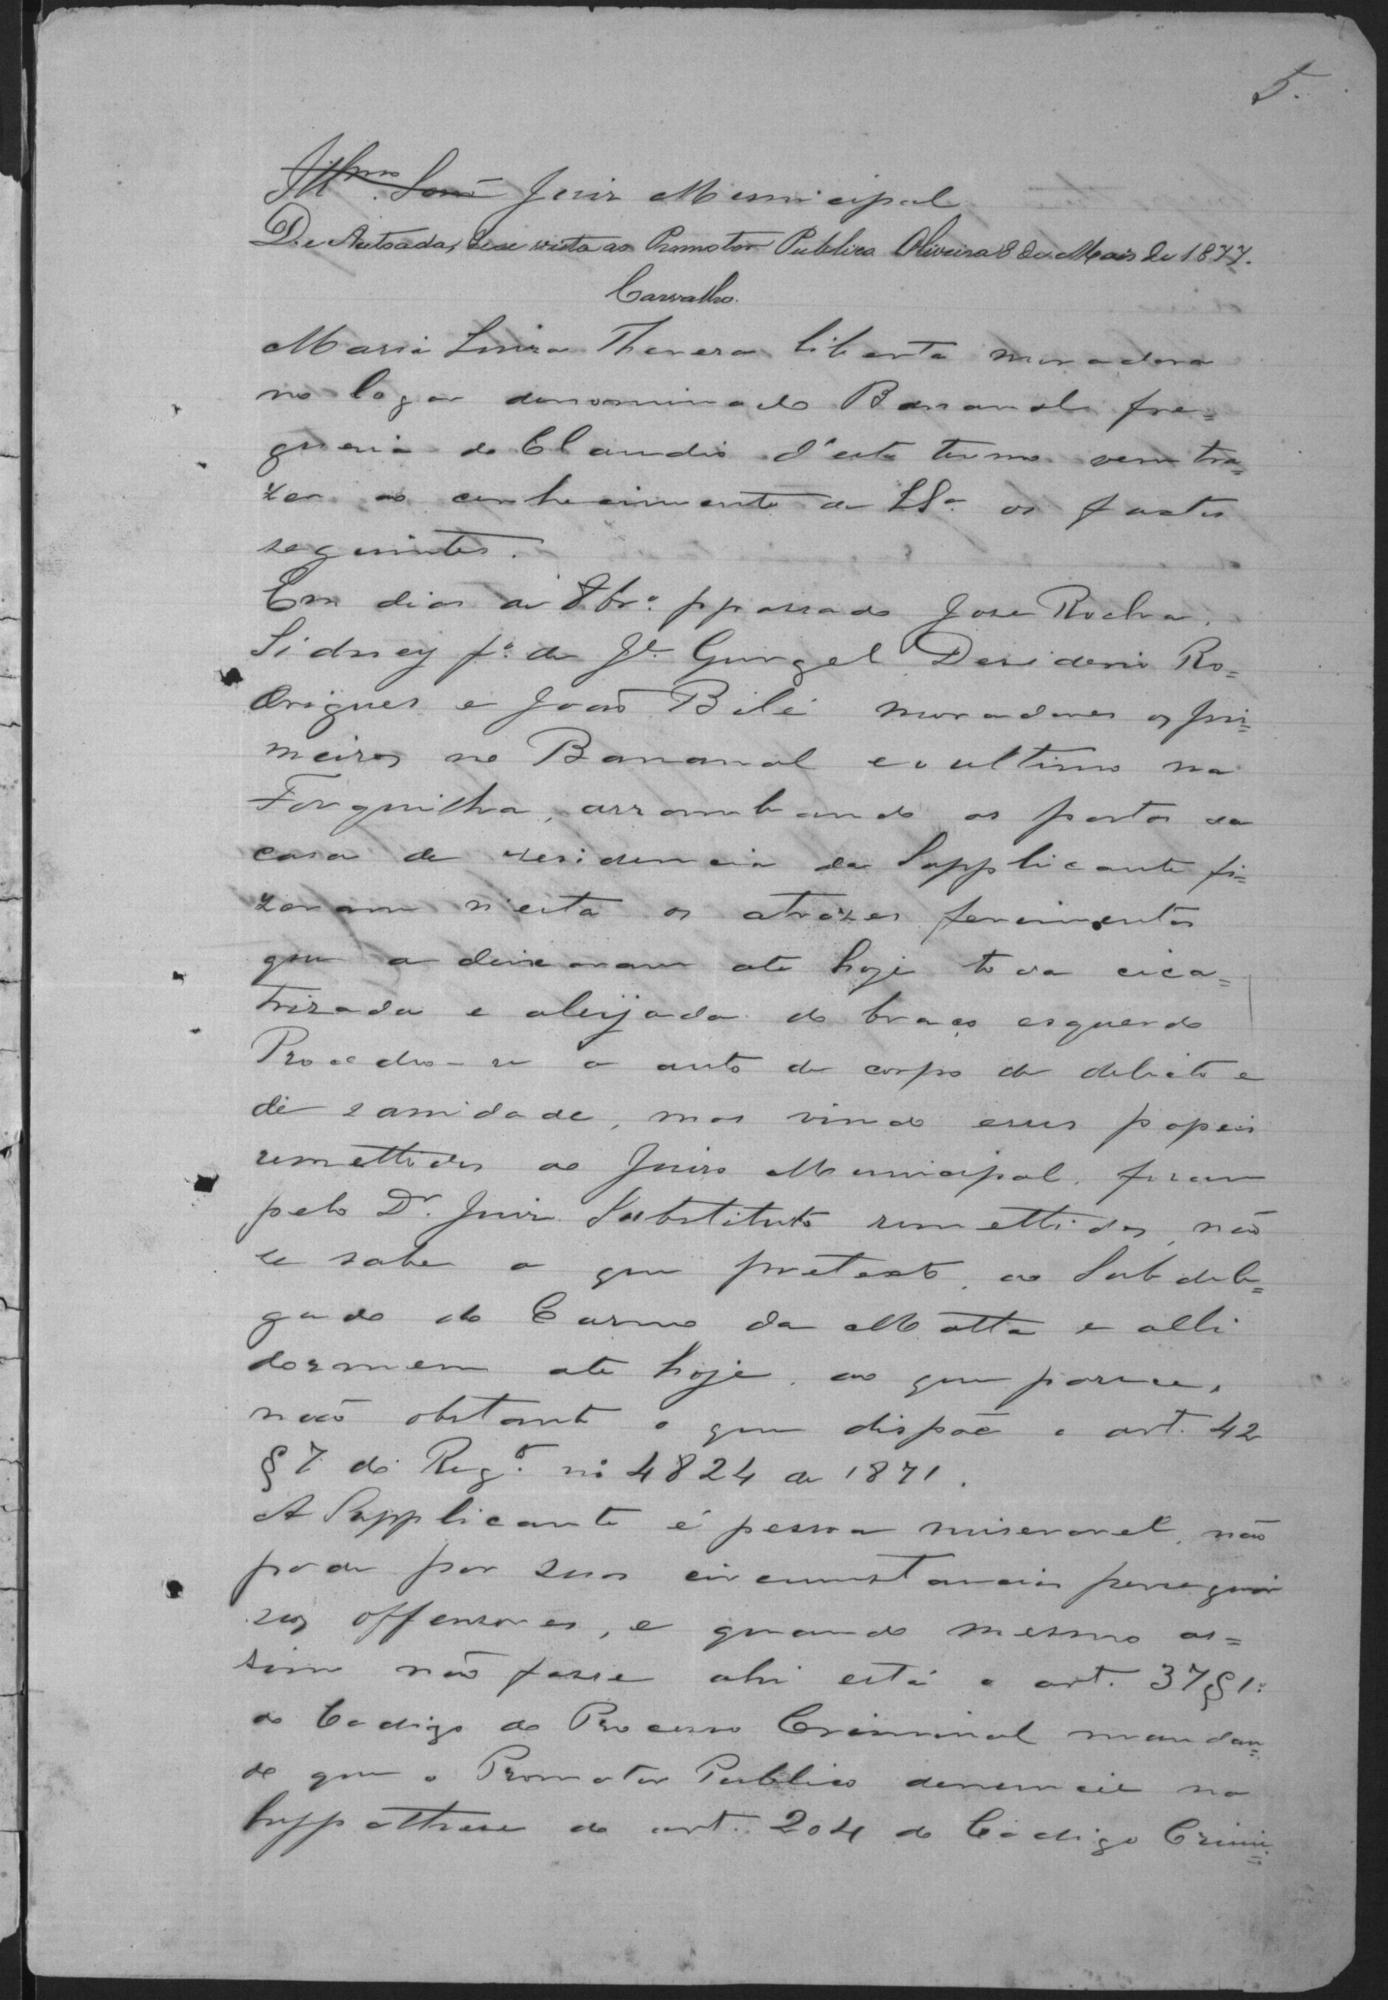 5.
Illmo. Snr. Juiz Municipal
De Autoada, dese vista ao Promotor Publico Oliveira 8 de Maio de 1877.
Carvalho.
Maria Luiza Thereza liberta moradora
no logar denominado Bananal fre=
guesia do Claudio d'este termo vem tra=
zer ao conhecimento de VSª os factos
seguintes.
Em dias de 8bro. ppassado José Rocha,
Sidney fº de Jº Gurgel Desiderio Ro=
drigues e João Bilé moradores os pri=
meiros no Bananal e o ultimo na
Forquilha, arrombando as portas da
casa de residencia da Supplicante fi=
zeram n'esta os atrozes ferimentos
que a deixaram até hoje toda cica=
trizada e aleijada do braço esquerdo
Procedeo-se a auto de corpo de delicto e
de sanidade, mas vindo esses papeis
remettidos ao Juizo Municipal, foram
pelo Dr. Juiz Substituto remettidos, não
se sabe a que pretexto, ao Subdele=
gado do Carmo da Matta e alli
dormem até hoje, ao que parece,
não obstante o que dispõe o art. 42
§ 7 do Regto. nº 4824 de 1871.
A Supplicante é pessoa miseravel, não
pode por suas circumstancias perseguir
seos offensores, e quando mesmo as=
sim não fosse ahi está o art. 37 § 1º
do Codigo do Processo Criminal mandan=
do que o Promotor Publico denuncie na
hyppothese do art. 204 do Codigo Crimi=